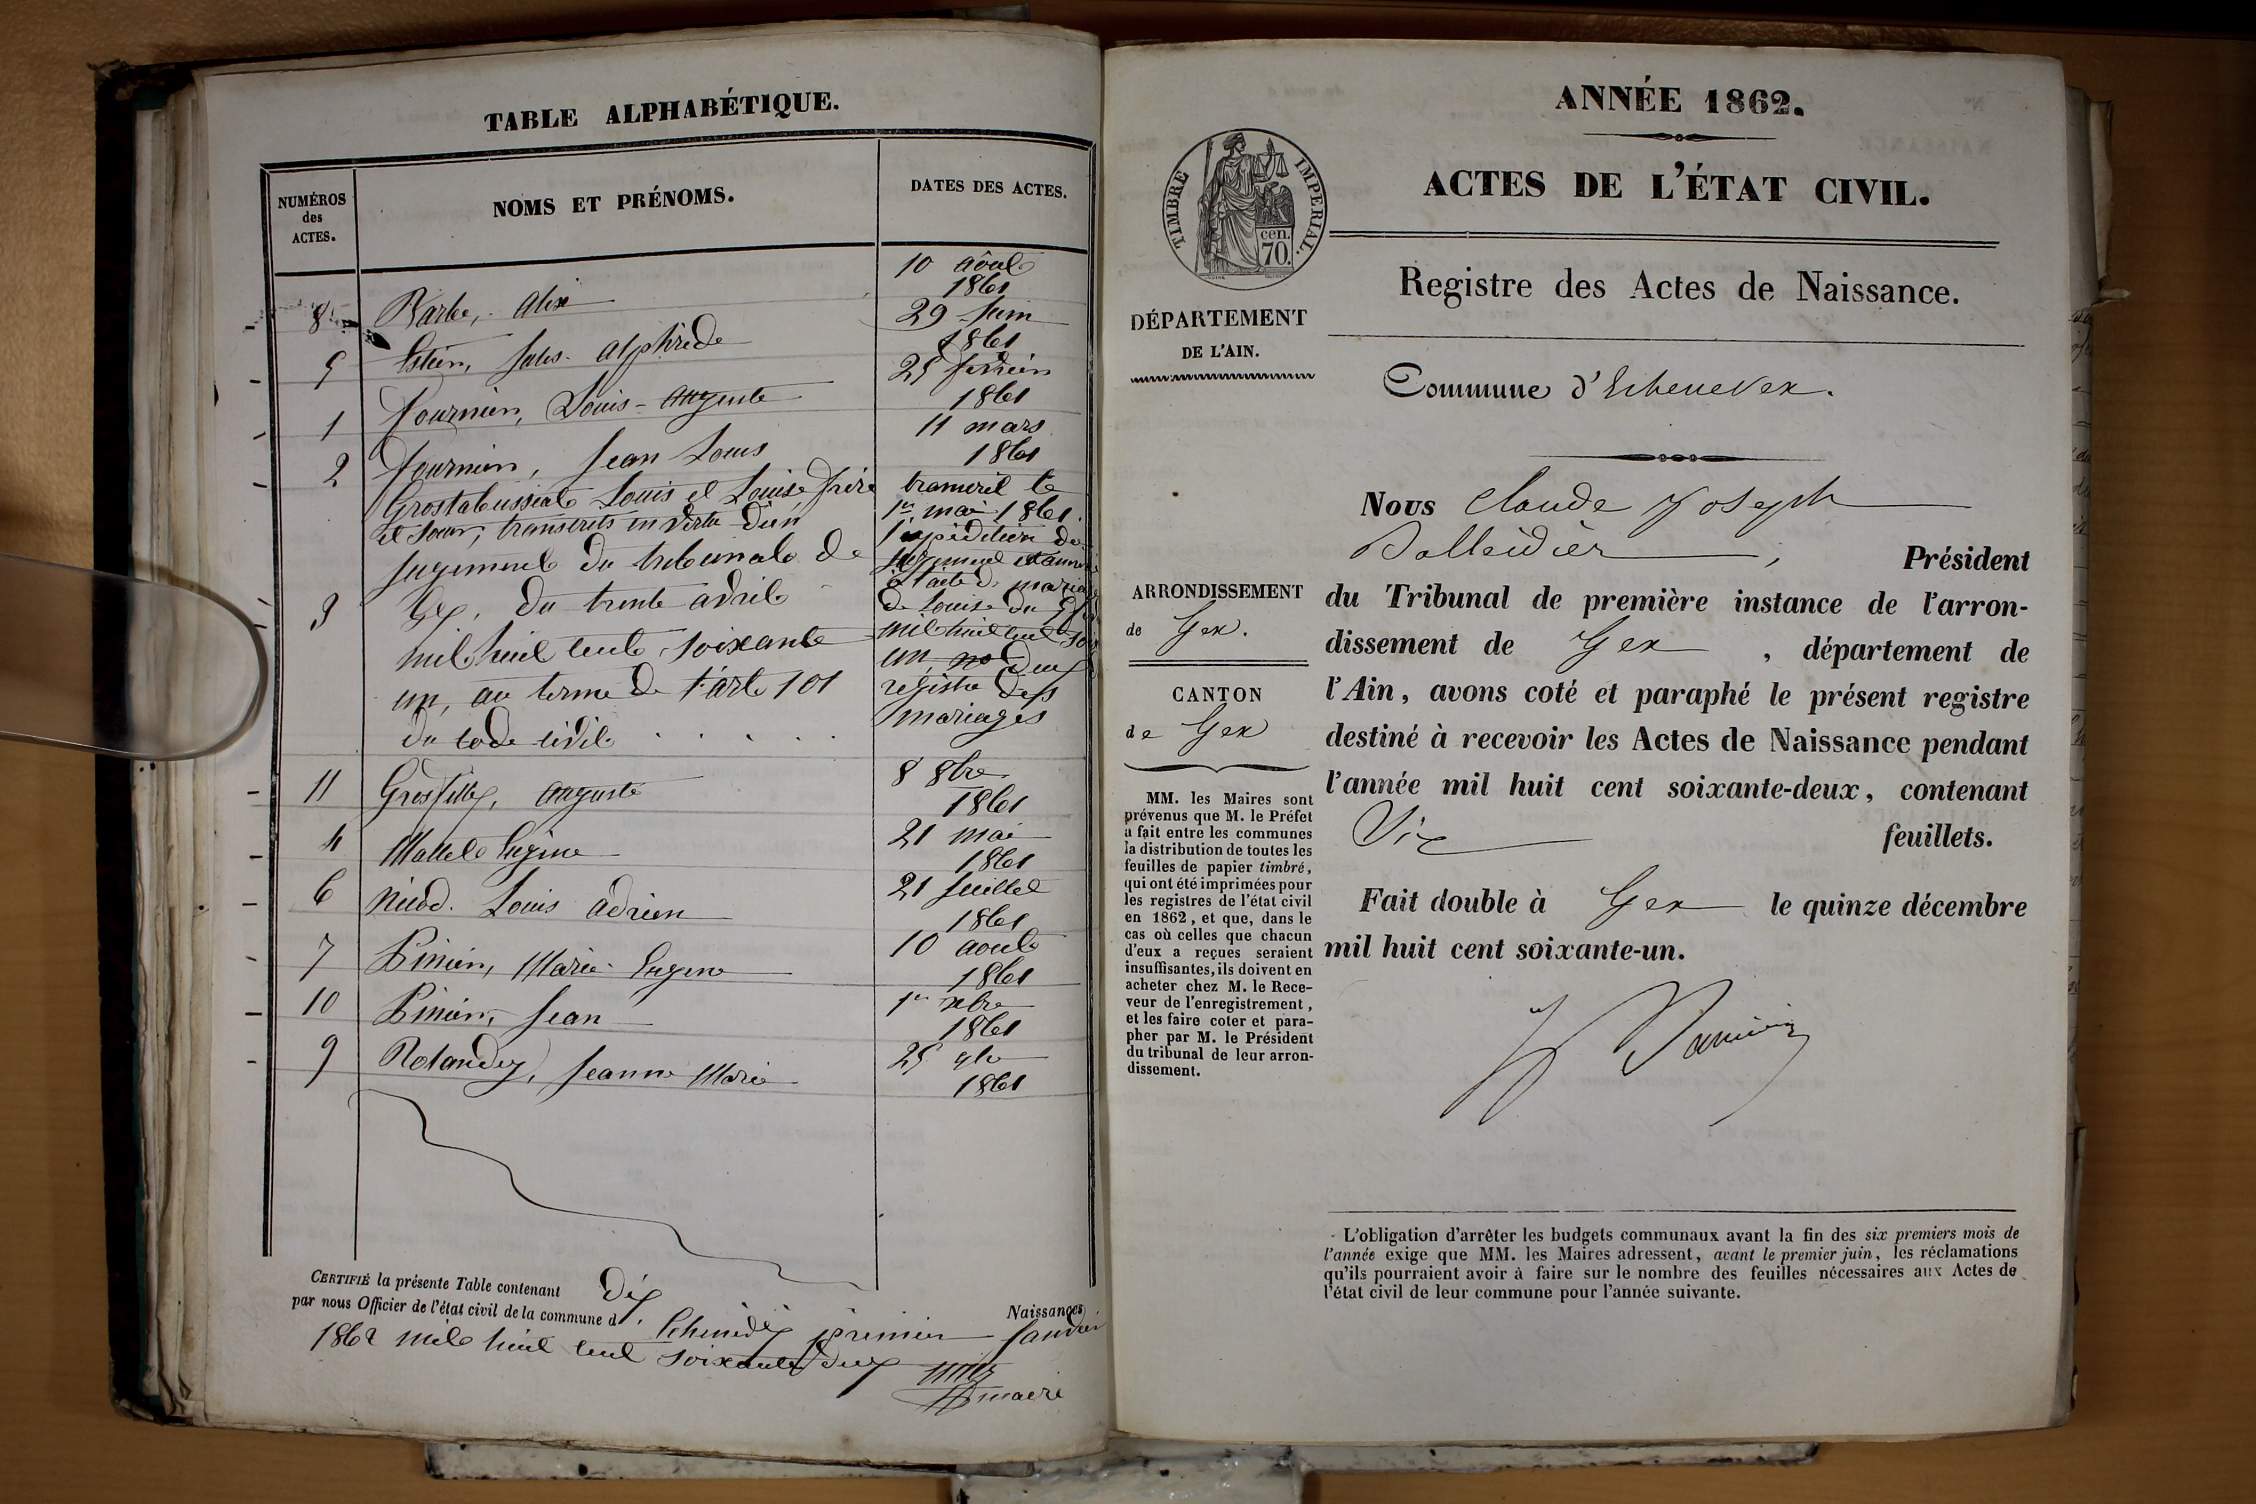 TABLE ALPHABÉTIQUE.
NUMÉROS des ACTES.
NOMS ET PRÉNOMS.
DATES DES ACTES.
8 Barbe, Alix 10 août 1861
5 Jules Alphrede 29 Juin 1861
1 Fournier, Louis-Auguste 25 février 1861
2 Fournier, Jean Louis 11 mars 1861
3 Grostabussiat Louis et Louise frère
et soeur, transcrits en vertu d'un
jugement du tribunal de
Gex, du trente avril
mil huit cent soixante
un, au terme de l'arte 101
du code civil . . . . .
transcrit le
1er mai 1861.
l'expédition du
jugement
à l'acte de mariage
de Louise du
mil huit cent
un
registre des
mariages
11 Grosfilley, Auguste 8 8bre 1861
4 Mattel Eugène 21 mai 1861
6 Nicod. Louis Adrien 21 Juillet 1861
7 Pinier, Marie Eugene 10 août 1861
10 Pinier, Jean 1er xbre 1861
9 Rolandez, Jeanne Marie 25 9bre 1861
CERTIFIÉ la présente Table contenant dix Naissances
par nous Officier de l'état civil de la commune d' premier Janvier
1862 mil huit cent soixante deux
maire
ANNÉE 1862.
ACTES DE L'ÉTAT CIVIL.
TIMBRE IMPERIAL.
cen. 70.
Registre des Actes de Naissance.
DÉPARTEMENT
DE L'AIN.
Commune d'Echenevex.
Nous Claude Joseph
Balleidier, Président
du Tribunal de première instance de l'arron-
dissement de Gex, département de
l'Ain, avons coté et paraphé le présent registre
destiné à recevoir les Actes de Naissance pendant
l'année mil huit cent soixante-deux, contenant
Six feuillets.
Fait double à Gex le quinze décembre
mil huit cent soixante-un.
ARRONDISSEMENT
de Gex.
CANTON
de Gex
MM. les Maires sont
prévenus que M. le Préfet
a fait entre les communes
la distribution de toutes les
feuilles de papier timbré,
qui ont été imprimées pour
les registres de l'état civil
en 1862, et que, dans le
cas où celles que chacun
d'eux a reçues seraient
insuffisantes, ils doivent en
acheter chez M. le Rece-
veur de l'enregistrement,
et les faire coter et para-
pher par M. le Président
du tribunal de leur arron-
dissement.
L'obligation d'arrêter les budgets communaux avant la fin des six premiers mois de
l'année exige que MM. les Maires adressent, avant le premier juin, les réclamations
qu'ils pourraient avoir à faire sur le nombre des feuilles nécessaires aux Actes de
l'état civil de leur commune pour l'année suivante.